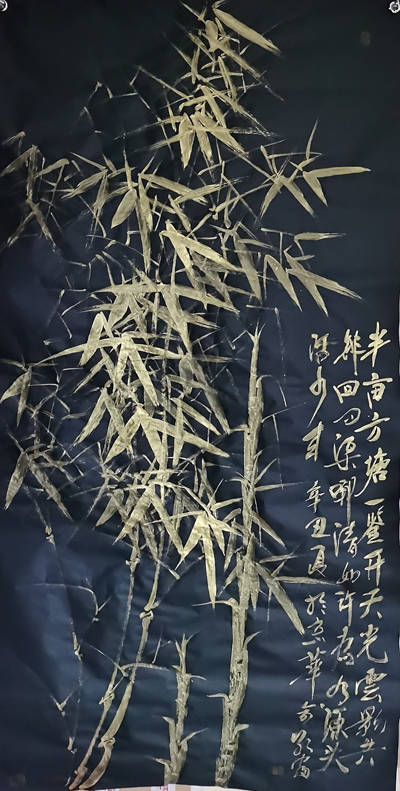 半亩方塘一鑒开天光雲影共
徘回问渠哪清如许为有源头
活水来 辛丑夏於京華